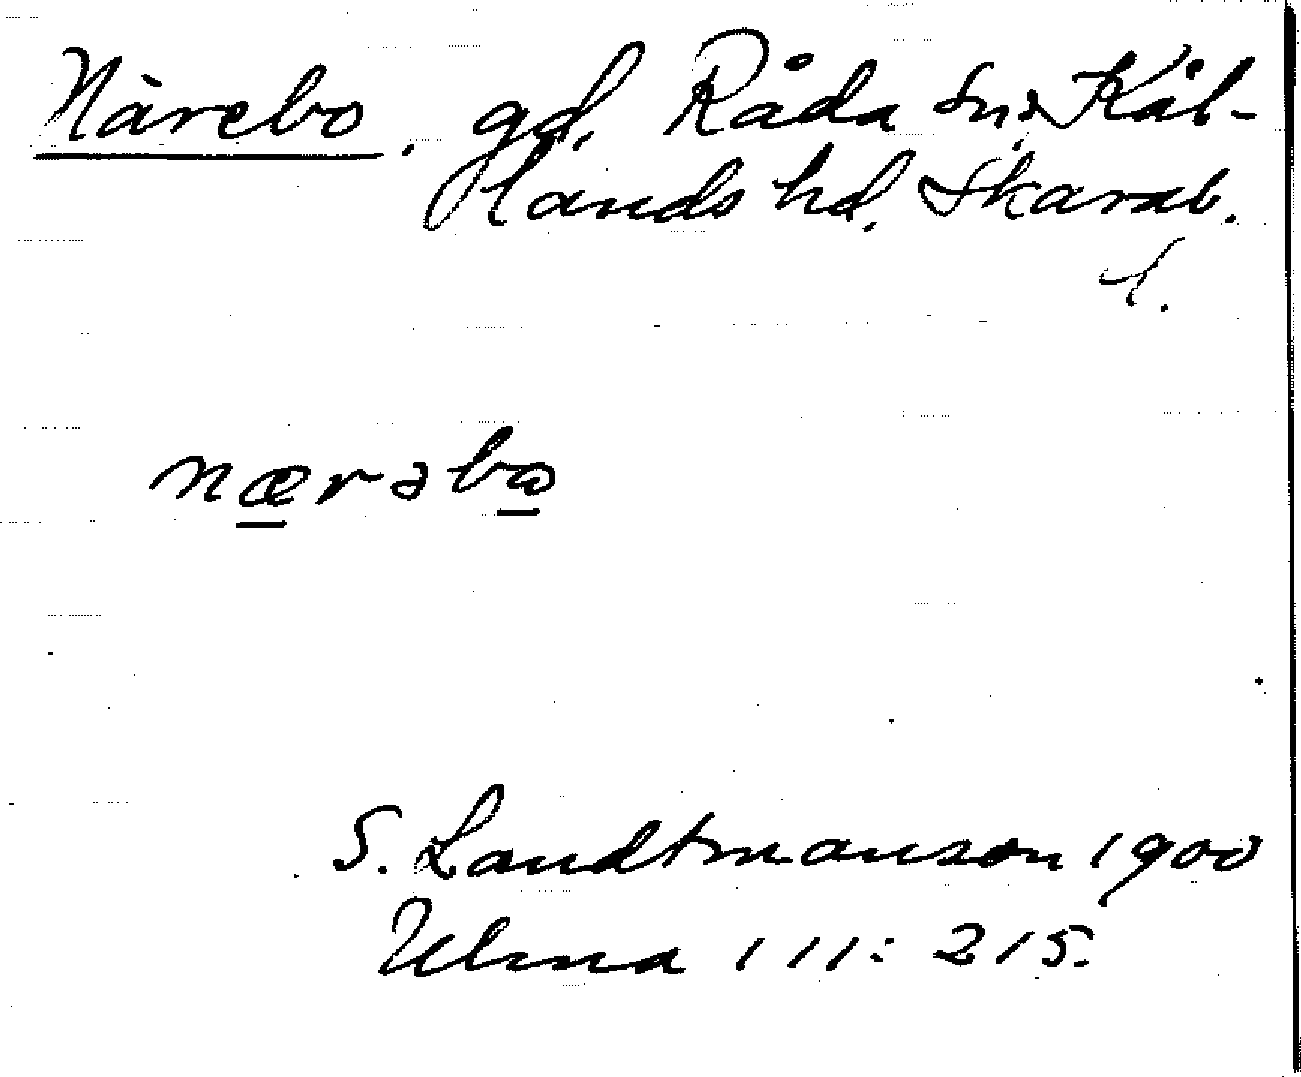 Närebo, gd. Råda sn, Kål-
lands hd. Skarab.
l.
nærəbω
S. Landtmanson 1900
Ulma 111: 215.